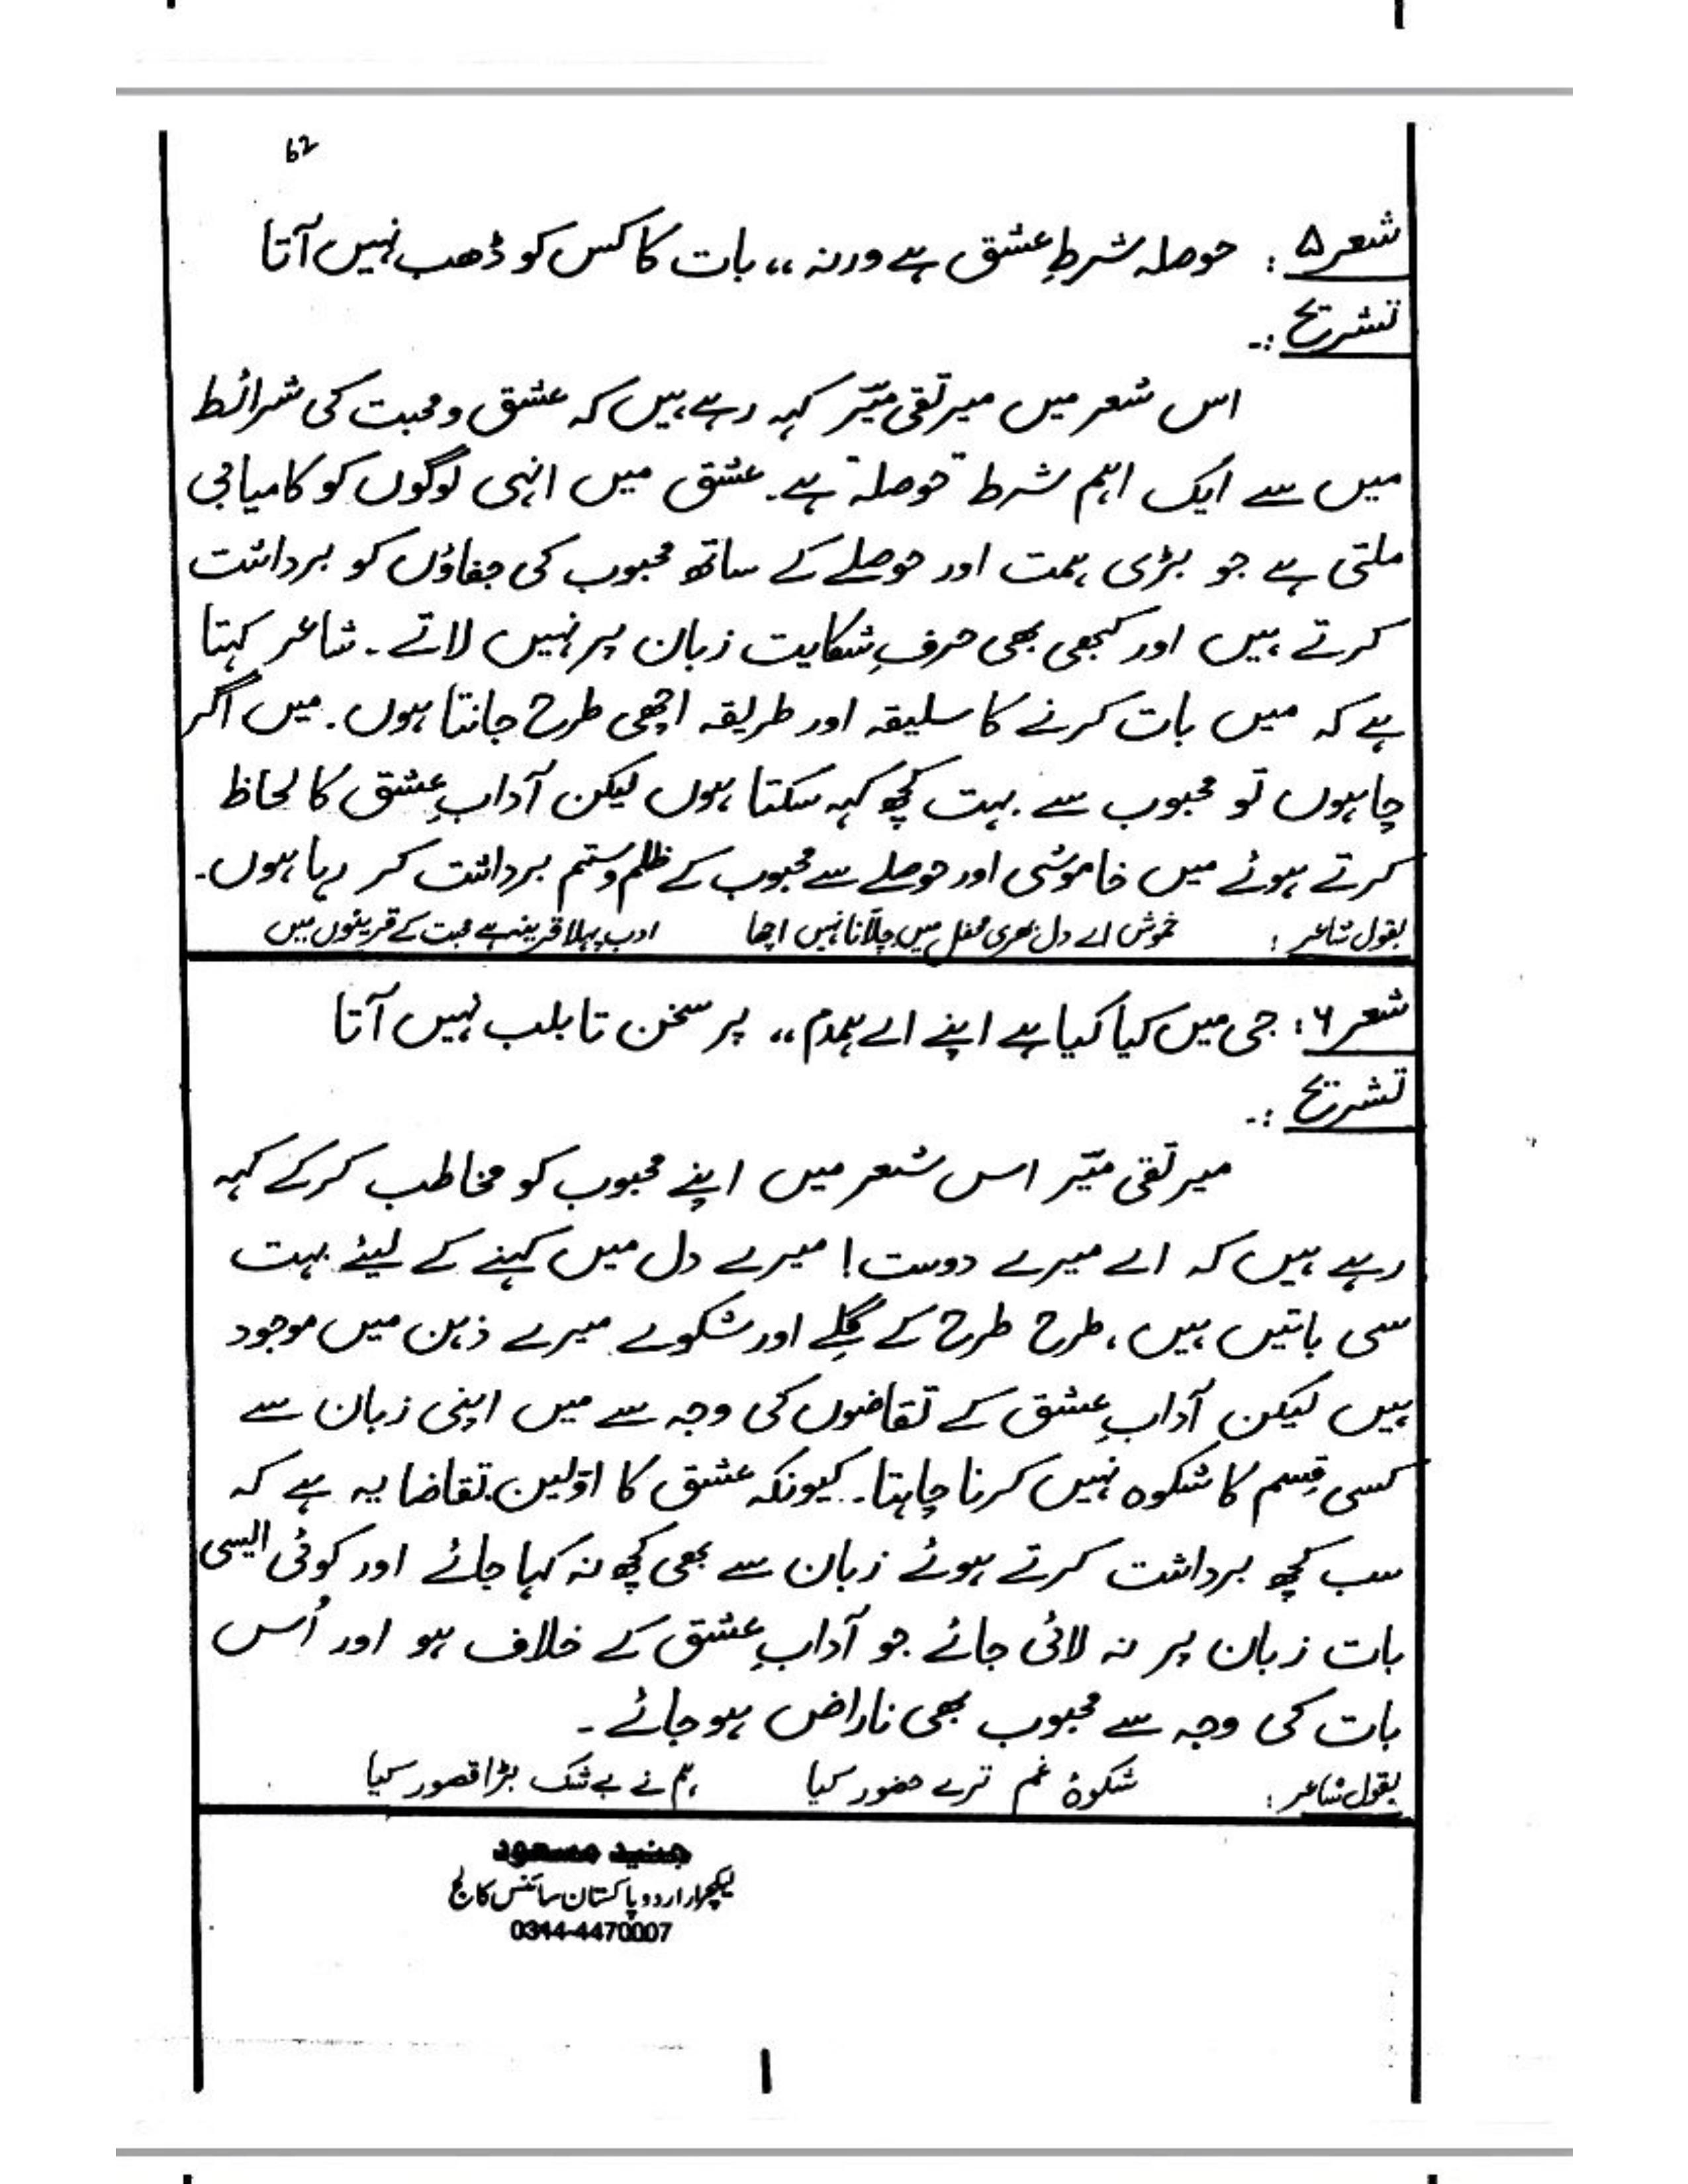 62
شعر ۵ : حوصلہ شرطِ عشق ہے ورنہ ،، بات کا کس کو ڈھب نہیں آتا
تشریح :-
اس شعر میں میر تقی میؔر کہہ رہے ہیں کہ عشق و محبت کی شرائط
میں سے ایک اہم شرط "حوصلہ" ہے۔ عشق میں انہی لوگوں کو کامیابی
ملتی ہے جو بڑی ہمت اور حوصلے کے ساتھ محبوب کی جفاؤں کو برداشت
کرتے ہیں اور کبھی بھی حرفِ شکایت زبان پر نہیں لاتے ۔ شاعر کہتا
ہے کہ میں بات کرنے کا سلیقہ اور طریقہ اچھی طرح جانتا ہوں۔ میں اگر
چاہوں تو محبوب سے بہت کچھ کہہ سکتا ہوں لیکن آدابِ عشق کا لحاظ
کرتے ہوئے میں خاموشی اور حوصلے سے محبوب کے ظلم و ستم برداشت کر رہا ہوں۔
بقول شاعر : خموش اے دل بھری محفل میں چلّانا نہیں اچھا ادب پہلا قرینہ ہے محبت کے قرینوں میں
شعر ۶ : جی میں کیا کیا ہے اپنے اے ہمدم ،، پر سخن تا بلب نہیں آتا
تشریح :-
میر تقی میؔر اس شعر میں اپنے محبوب کو مخاطب کر کے کہہ
رہے ہیں کہ اے میرے دوست! میرے دل میں کہنے کے لیئے بہت
سی باتیں ہیں، طرح طرح کے گِلے اور شکوے میرے ذہن میں موجود
ہیں لیکن آدابِ عشق کے تقاضوں کی وجہ سے میں اپنی زبان سے
کسی قسم کا شکوہ نہیں کرنا چاہتا۔ کیونکہ عشق کا اوّلین تقاضا یہ ہے کہ
سب کچھ برداشت کرتے ہوئے زبان سے بھی کچھ نہ کہا جائے اور کوئی ایسی
بات زبان پر نہ لائی جائے جو آدابِ عشق کے خلاف ہو اور اُس
بات کی وجہ سے محبوب بھی ناراض ہو جائے ۔
بقول شاعر : شکوۂ غم ترے حضور کیا ہم نے بے شک بڑا قصور کیا
جنید مسعود
لیکچرار اردو پاکستان سائنس کالج
0344-4470007
1